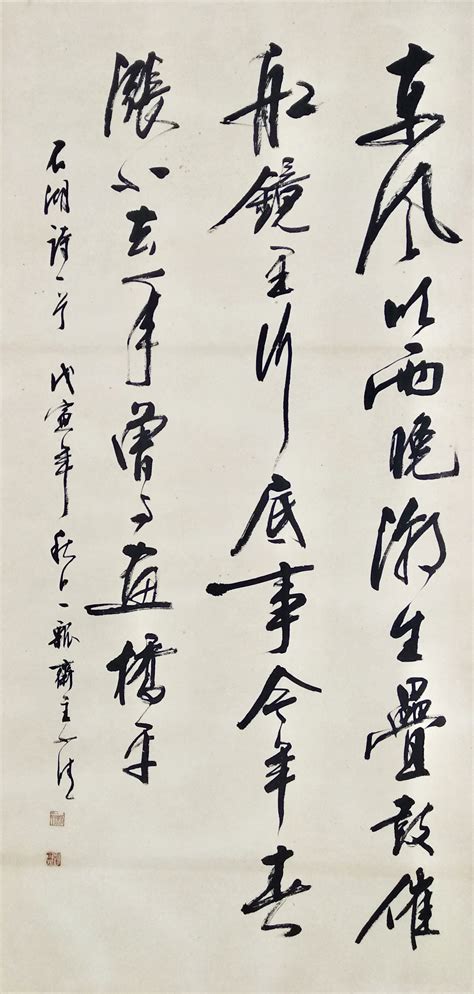 東風吹雨晚潮生疊鼓催
船鏡里行底事今年春
漲小去年曾与畫橋平
石湖詩一首 戊寅年秋一瓢齋主